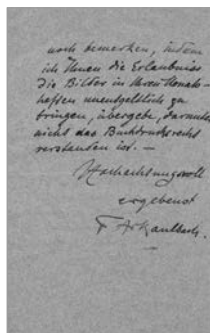 noch bemerken, indem
ich Ihnen die Erlaubniss
die Bilder in Ihren Monats-
heften unentgeltlich zu
bringen, übergebe, darunter
nicht das Buchdruckrecht
verstanden ist. —
Hochachtungsvoll
ergebenst
F A Kaulbach.